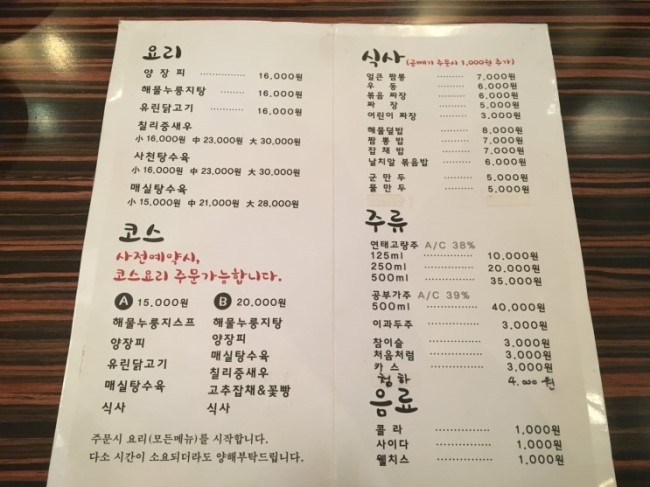 요리
양 장 피 ............ 16,000원
해물누룽지탕 ........ 16,000원
유린닭고기 ......... 16,000원
칠리중새우
小 16,000원 中 23,000원 大 30,000원
사천탕수육
小 16,000원 中 23,000원 大 30,000원
매실탕수육
小 15,000원 中 21,000원 大 28,000원
코스
사전예약시,
코스요리 주문가능합니다.
A 15,000원
해물누룽지스프
양장피
유린닭고기
매실탕수육
식사
B 20,000원
해물누룽지탕
양장피
매실탕수육
칠리중새우
고추잡채&꽃빵
식사
주문시 요리(모든메뉴)를 시작합니다.
다소 시간이 소요되더라도 양해부탁드립니다.
식사 (곱빼기 주문시 1,000원 추가)
얼큰 짬뽕 ......... 7,000원
우 동 ......... 6,000원
볶음 짜장 ......... 6,000원
짜 장 ......... 5,000원
어린이 짜장 ......... 3,000원
해물덮밥 ......... 8,000원
짬 뽕 밥 ......... 7,000원
잡 채 밥 ......... 7,000원
날치알 볶음밥 ......... 6,000원
군 만 두 ......... 5,000원
물 만 두 ......... 5,000원
주류
연태고량주 A/C 38%
125ml ............ 10,000원
250ml ............ 20,000원
500ml ............ 35,000원
공부가주 A/C 39%
500ml ............ 40,000원
이과두주 ............ 3,000원
참이슬 ............ 3,000원
처음처럼 ............ 3,000원
카 스 ............ 3,000원
청하 4,000원
음료
콜 라 ............ 1,000원
사이다 ............ 1,000원
웰치스 ............ 1,000원